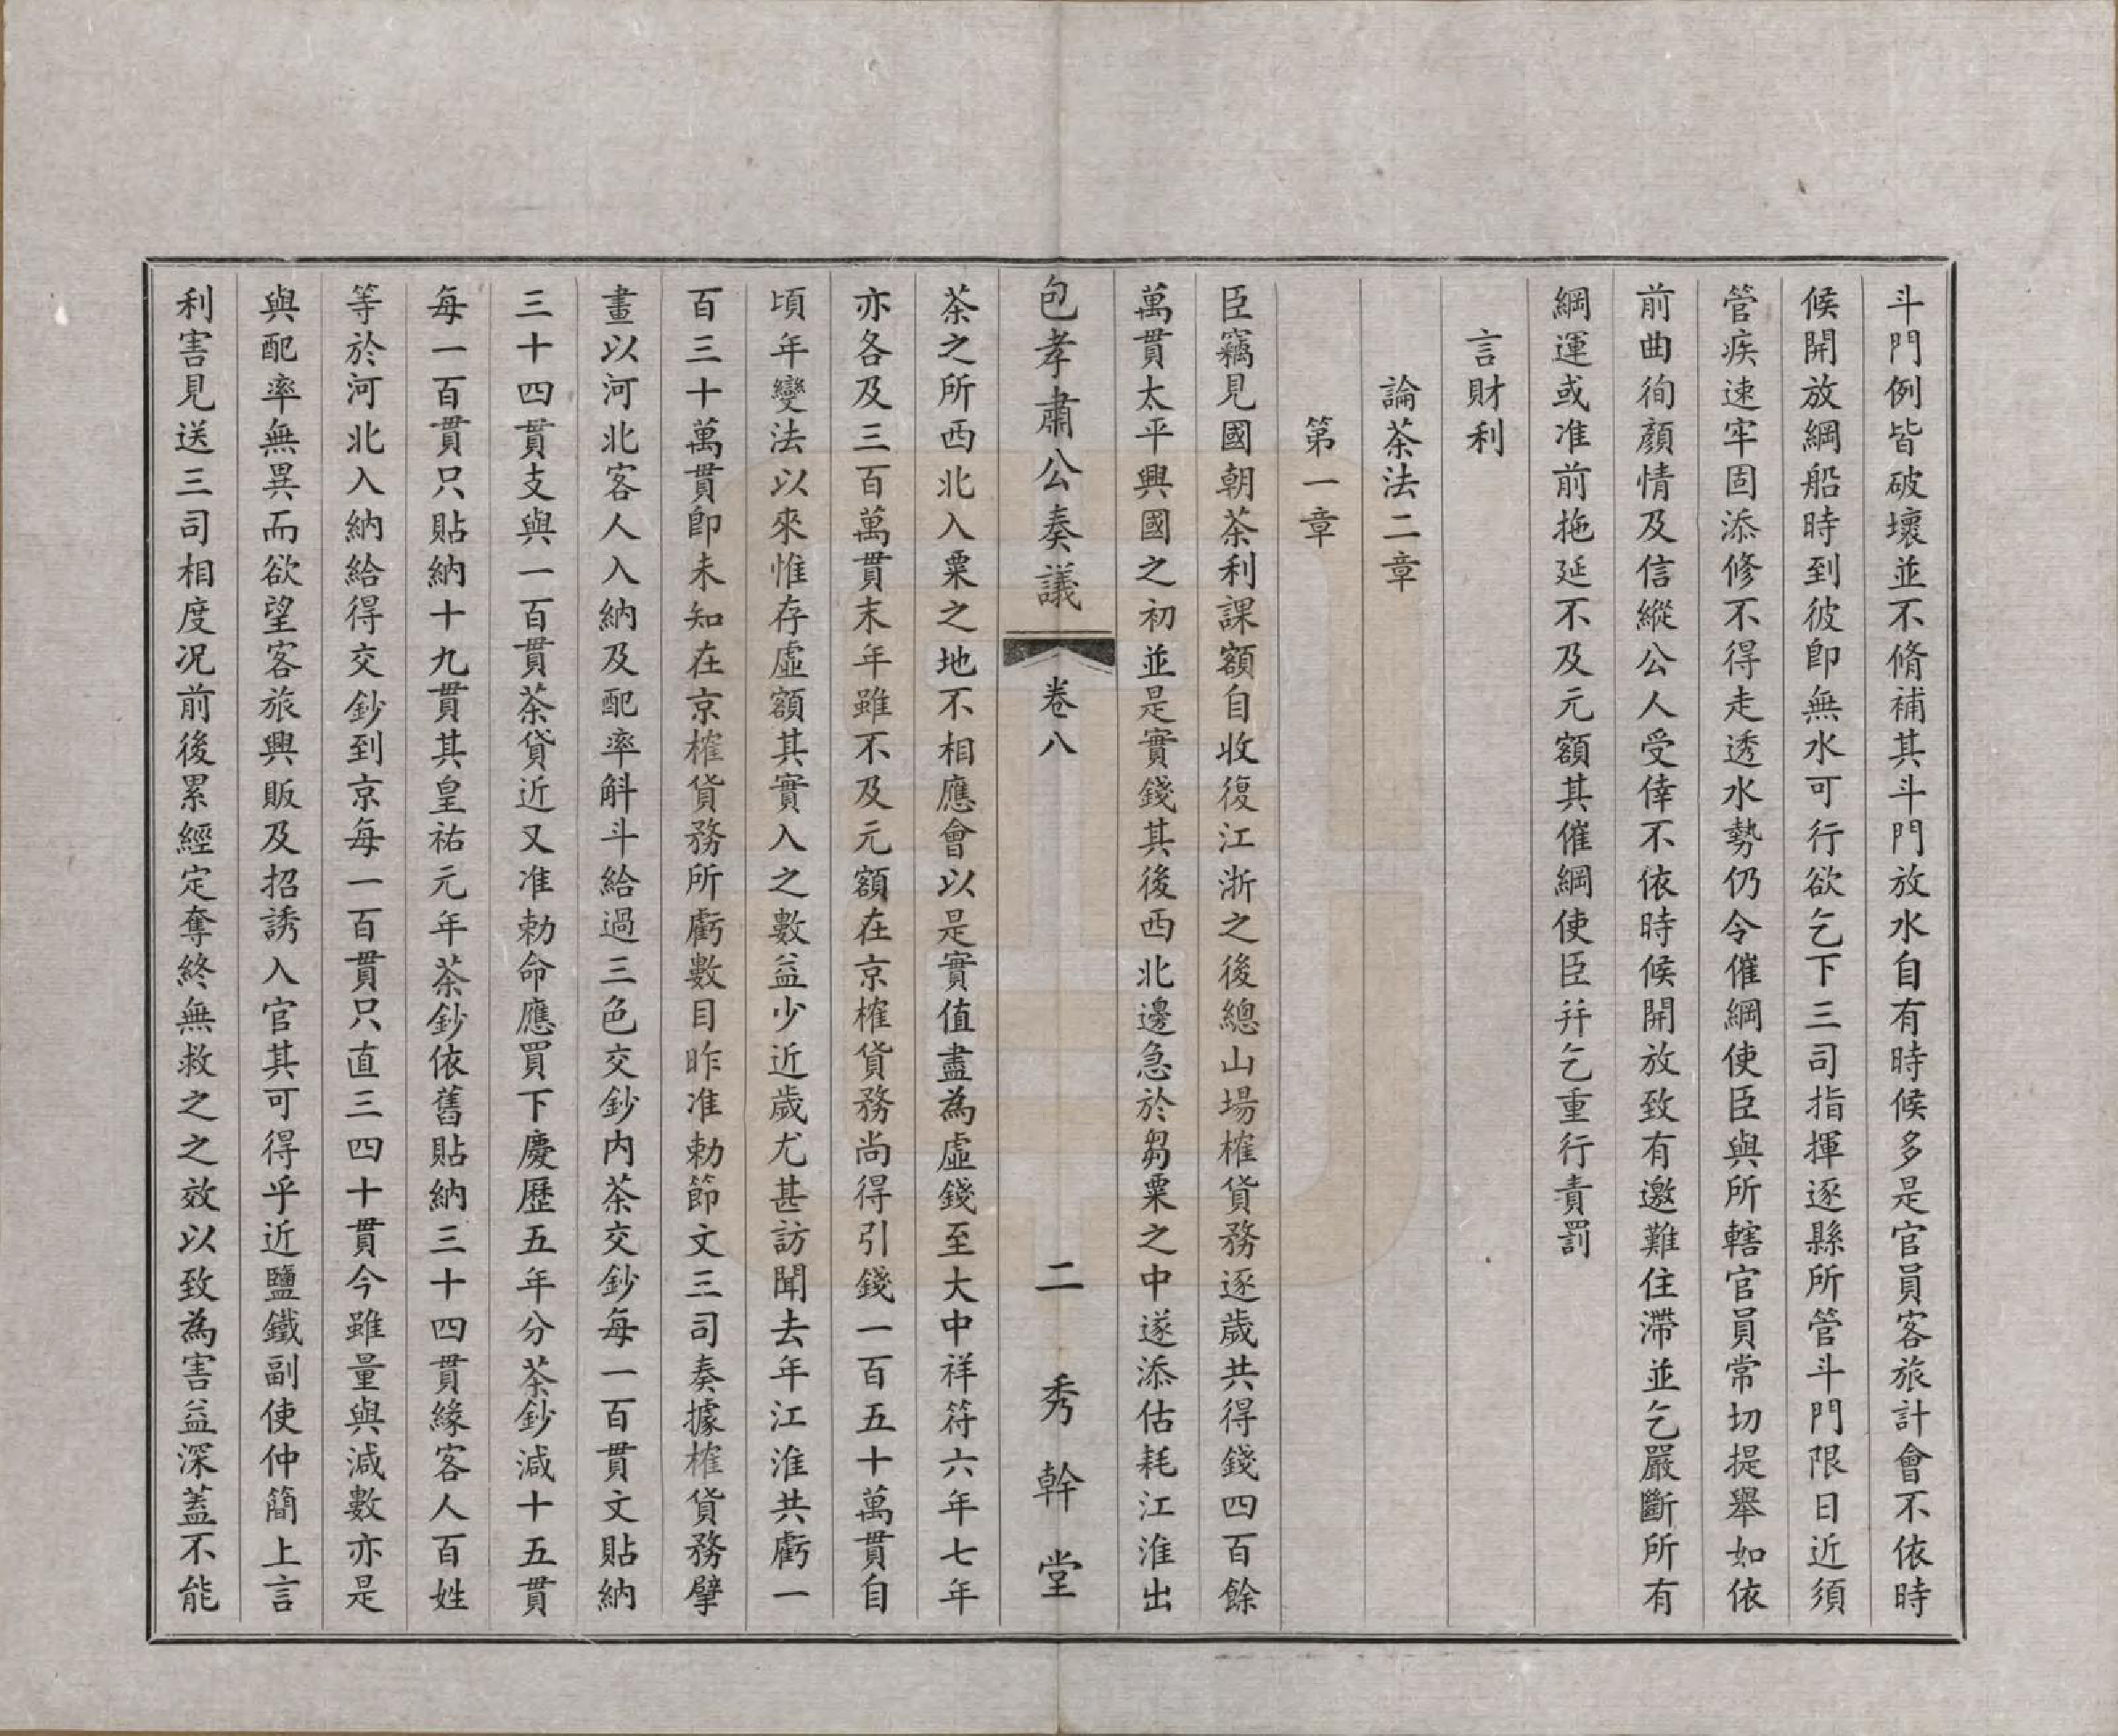 斗門例皆破壞並不脩補其斗門放水自有時候多是官員客旅計會不依時
候開放綱船時到彼卽無水可行欲乞下三司指揮逐縣所管斗門限日近須
管疾速牢固添修不得走透水勢仍令催綱使臣與所轄官員常切提舉如依
前曲徇顏情及信縱公人受倖不依時候開放致有邀難住滯並乞嚴斷所有
綱運或准前拖延不及元額其催綱使臣并乞重行責罰
言財利
論茶法二章
第一章
臣竊見國朝茶利課額自收復江浙之後總山場榷貨務逐歲共得錢四百餘
萬貫太平興國之初並是實錢其後西北邊急於芻粟之中遂添估耗江淮出
包孝肅公奏議
卷八
二
秀幹堂
茶之所西北入粟之地不相應會以是實值盡為虛錢至大中祥符六年七年
亦各及三百萬貫末年雖不及元額在京榷貨務尚得引錢一百五十萬貫自
頃年變法以來惟存虛額其實入之數益少近歲尤甚訪聞去年江淮共虧一
百三十萬貫卽未知在京榷貨務所虧數目昨准勅節文三司奏據榷貨務擘
畫以河北客人入納及配率斛斗給過三色交鈔内茶交鈔每一百貫文貼納
三十四貫支與一百貫茶貨近又准勅命應買下慶歷五年分茶鈔減十五貫
每一百貫只貼納十九貫其皇祐元年茶鈔依舊貼納三十四貫緣客人百姓
等於河北入納給得交鈔到京每一百貫只直三四十貫今雖量與減數亦是
與配率無異而欲望客旅興販及招誘入官其可得乎近鹽鐵副使仲簡上言
利害見送三司相度况前後累經定奪終無救之之效以致為害益深蓋不能